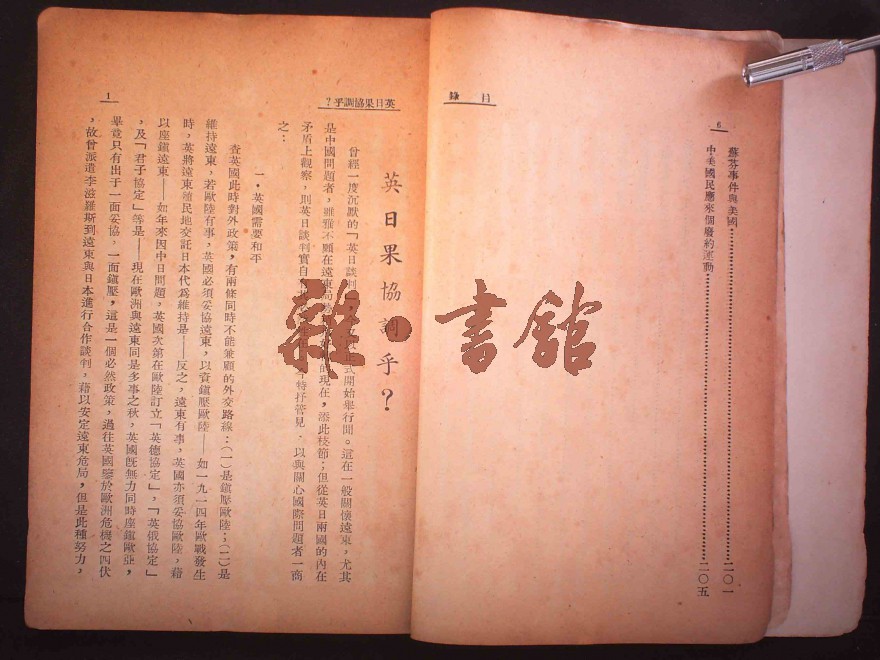 目錄
6
蘇芬事件與美國……二〇一
中美國民應來個廢約運動……二〇五
英日果協調乎？
1
英日果協調乎？
曾經一度沉默的「英日談判 式開始舉行間。這在一般關懷遠東，尤其
是中國問題者，雖雅不願在遠東局 的現在，添此枝節；但從英日兩國的內在
矛盾上觀察，則英日談判實自 特抒管見，以與關心國際問題者一商
之：
一．英國需要和平
查英國此時對外政策，有兩條同時不能兼顧的外交路線：（一）是鎮壓歐陸；（二）是
維持遠東，若歐陸有事，英國必須妥協遠東，以資鎮壓歐陸——如一九一四年歐戰發生
時，英將遠東殖民地交託日本代為維持是——反之，遠東有事，英國亦須妥協歐陸，藉
以座鎮遠東——如年來因中日問題，英國次第在歐陸訂立「英德協定」，「英俄協定」
，及「君子協定」等是——現在歐洲與遠東同是多事之秋，英國旣無力同時座鎮歐亞，
畢竟只有出于一面妥協，一面鎮壓，這是一個必然政策，過往英國鑒於歐洲危機之四伏
，故曾派遣李滋羅斯到遠東與日本進行合作談判，藉以安定遠東危局，但是此種努力，
雜·書館